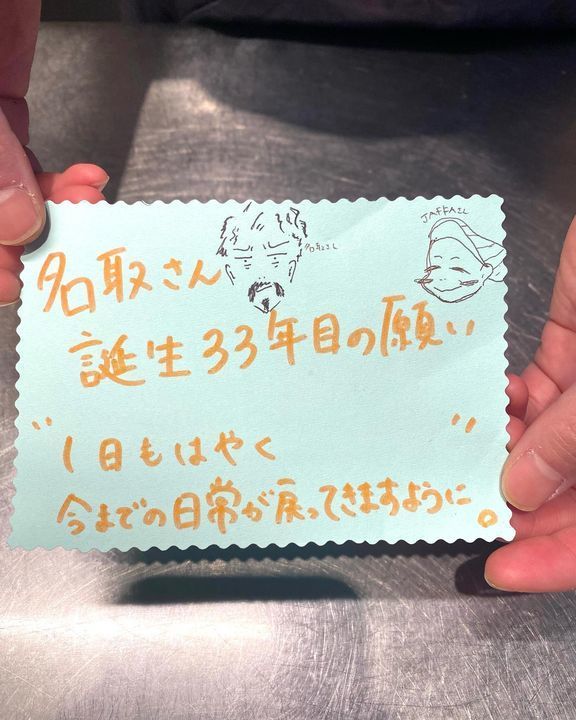 JAFFAさん
名取さん
名取さん
誕生33年目の願い
"1日もはやく
今までの日常が戻ってきますように。"